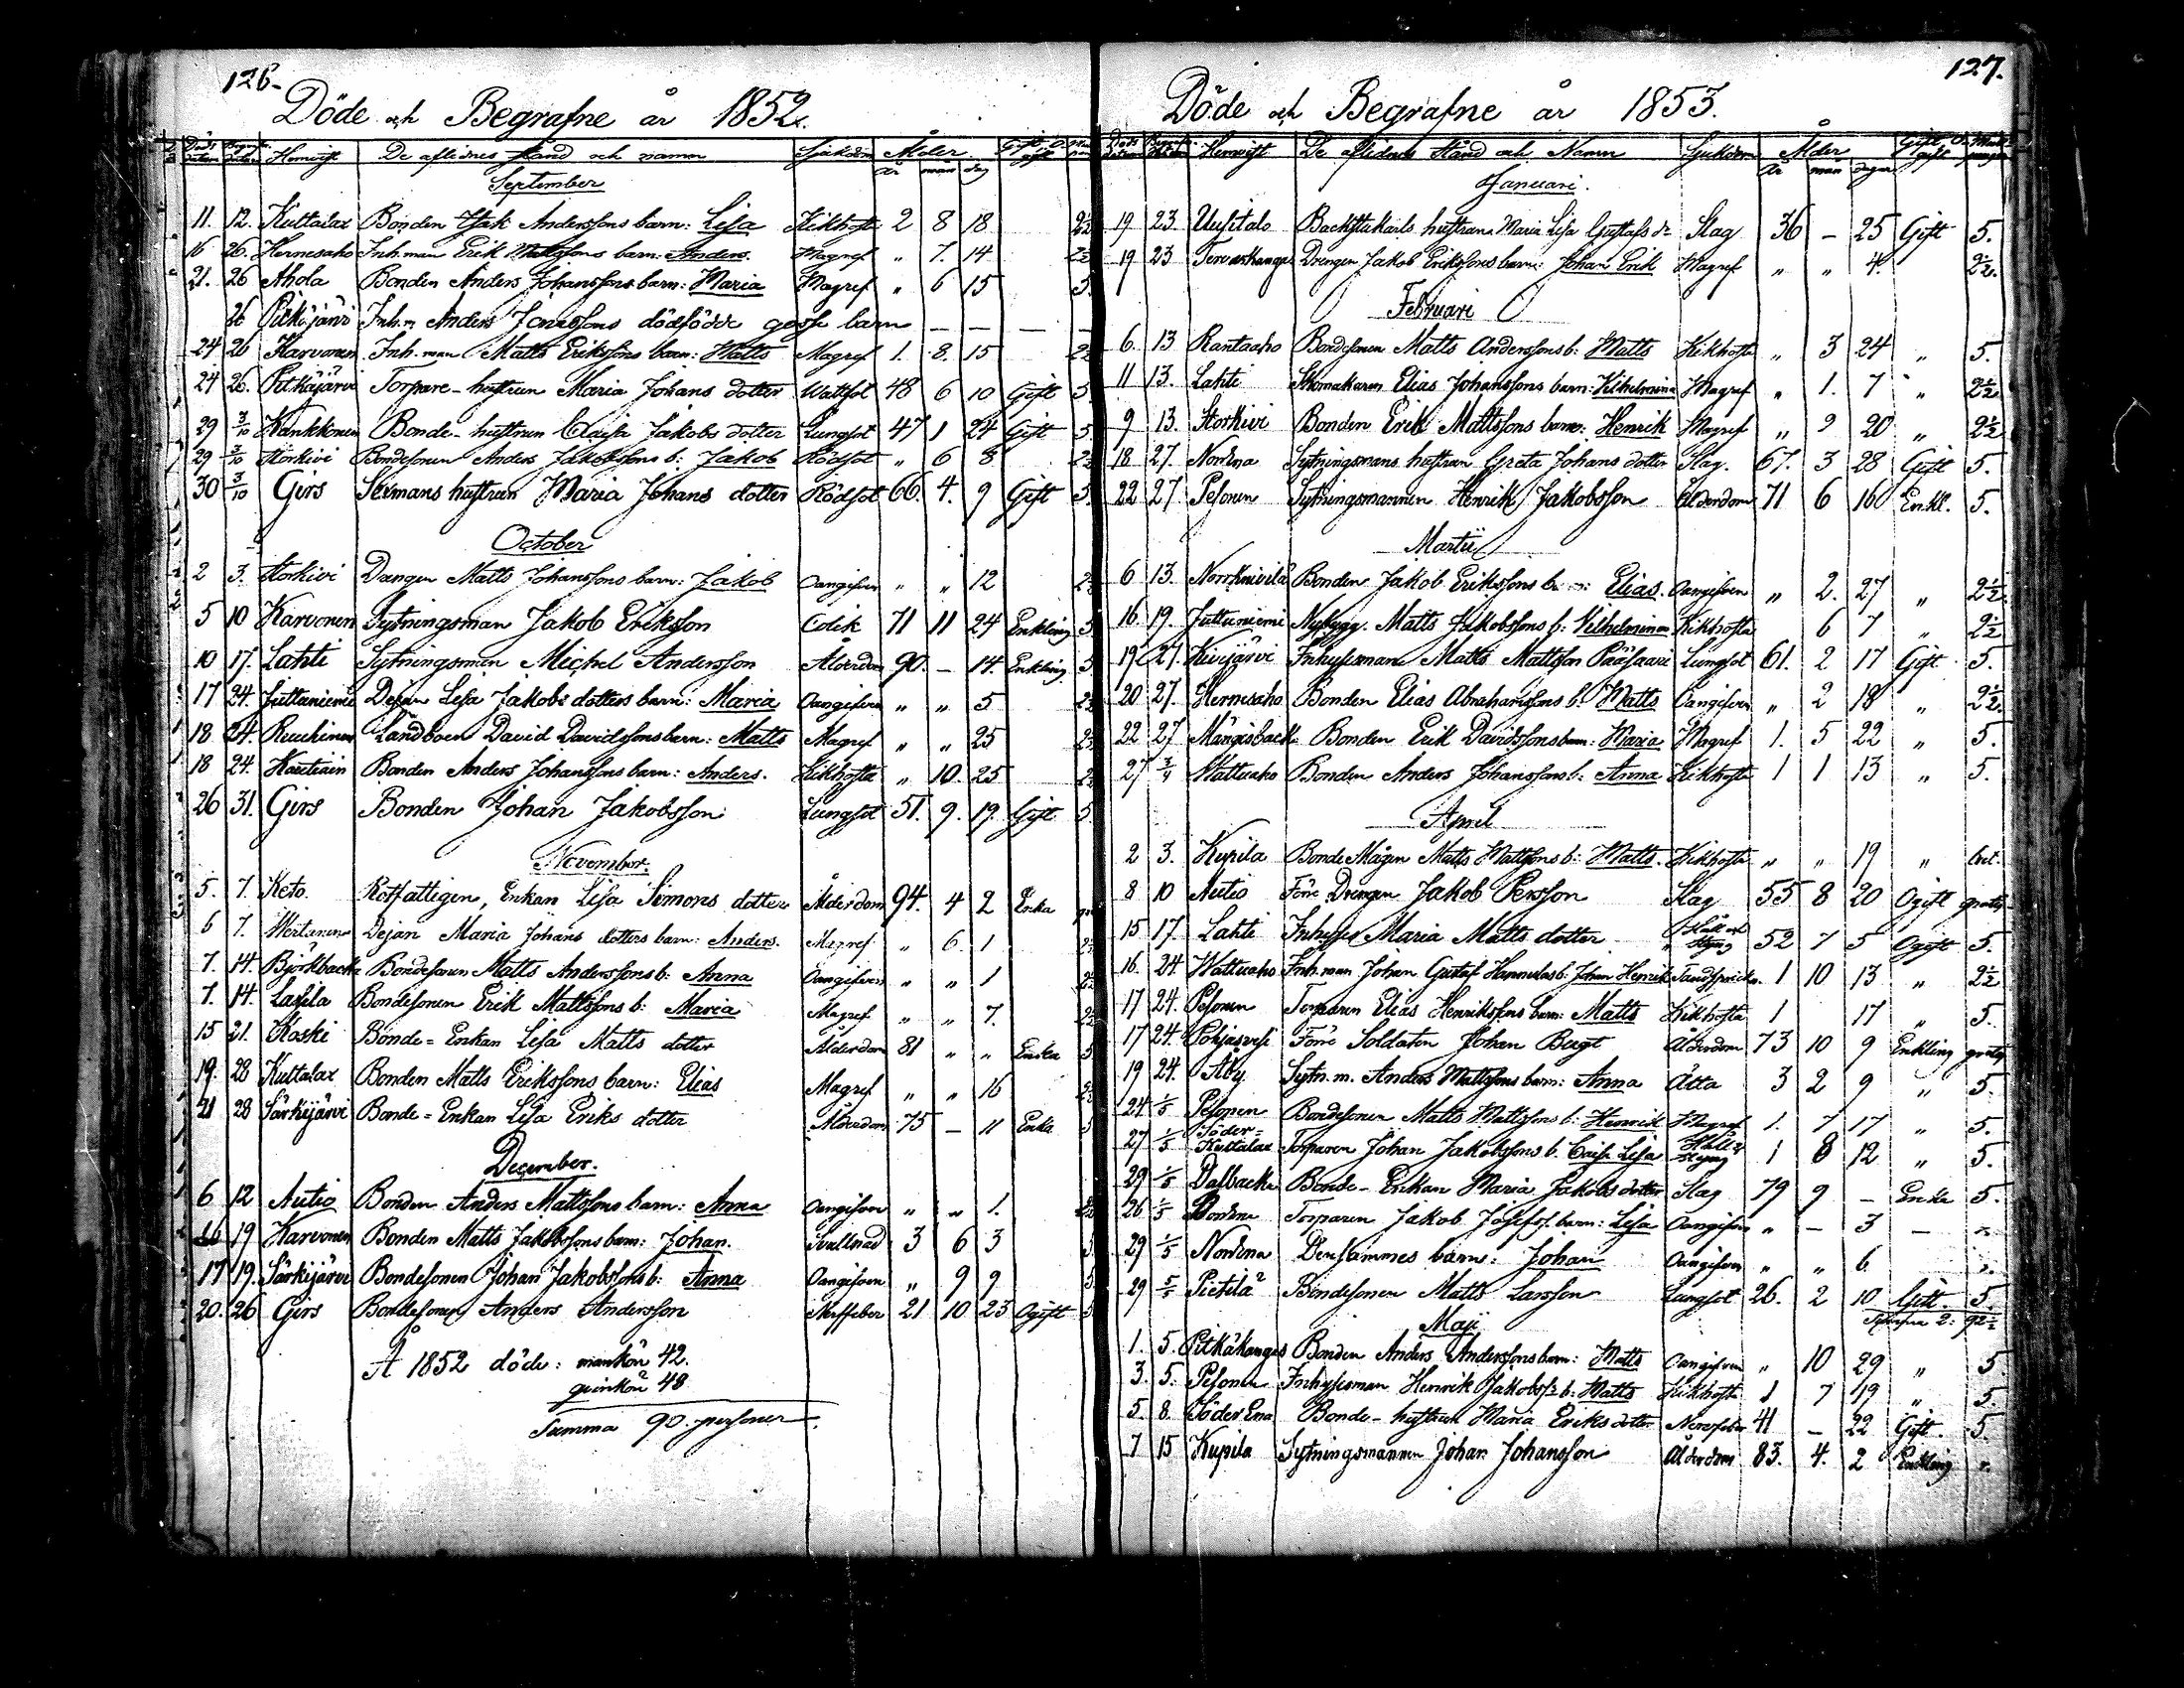 126.
Döde och Begrafne år 1852.
Döds datum Begrafn. datum Hemvist De aflidnes stånd och namn Sjukdom Ålder år mån dag Gift o. ogift
September
11. 12. Kuttalax Bonden Isak Anderssons barn: Lisa Kikhosta 2 8 18 2½
16 26. Hernesaho Inh.man Erik Mattssons barn: Anders. Magref " 7. 14 2½
21. 26 Ahola Bonden Anders Johanssons barn: Maria Magref " 6 15 5.
26 Pitkäjärvi Inh.m Anders Jonassons dödfödde gosse barn — — — —
24 26 Karvonen Inh. man Matts Erikssons barn: Matts Magref 1. 8. 15 2½
24 26. Pitkäjärvi Torpare-hustrun Maria Johans dotter Wattsot 48 6 10 Gift 5.
29 3/10 Kankkonen Bonde-hustrun Caisa Jakobs dotter Lungsot 47 1 24 Gift 5
29 3/10 Storkivi Bondesonen Anders Jakobssons b: Jakob Rödsot " 6 8 2½
30 3/10 Girs Sexmans hustrun Maria Johans dotter Rödsot 66. 4. 9 Gift 5.
October
2 3. Storkivi Drengen Matts Johanssons barn: Jakob Oangifven " " 12 2½
5 10 Karvonen Sytningsman Jakob Eriksson Colik 71 11 24 Enkling 5
10 17. Lahti Sytningsman Michel Andersson Ålderdom 90. — 14. Enkling 5
17 24. Juttuniemi Dejan Lisa Jakobs dotters barn: Maria Oangifven " " 5 2½
18. 24. Ruuhinen Landboen David Davidssons barn: Matts Magref " " 25 2½
18 24. Kautiain Bonden Anders Johanssons barn: Anders. Kikhosta " 10. 25 2½
26 31. Girs Bonden Johan Jakobsson Lungsot 51. 9. 19. Gift 5.
November.
5. 7. Keto. Rotfattigen, Enkan Lisa Simons dotter Ålderdom 94. 4 2 Enka
6 7. Wertanen Dejan Maria Johans dotters barn: Anders. Magref " 6. 1 2½
7. 14. Björkbacka Bondesonen Matts Anderssons b: Anna Oangifven " " 1 2½
7. 14. Lassila Bondesonen Erik Mattssons b: Maria Magref " " 7. 2½
15 21. Koski Bonde=Enkan Lisa Matts dotter Ålderdom 81 " " Enka 5
19. 28 Kuttalax Bonden Matts Erikssons barn: Elias Magref " " 16 2½
21 28 Särkijärvi Bonde=Enkan Lisa Eriks dotter Ålderdom 75 — 11 Enka 5
December.
6 12 Autio Bonden Anders Mattssons barn: Anna Oangifven " " 1. 2½
16 19 Karvonen Bonden Matts Jakobssons barn: Johan. Svullnad 3 6 3 5
17 19. Särkijärvi Bondesonen Johan Jakobssons b: Anna Oangifven " 9 9 5
20. 26 Girs Bondesonen Anders Andersson Nerffeber 21 10 23 Ogift 5
År 1852 döde: mankön 42.
qvinkön 48
Summa 90. personer
127.
Döde och Begrafne år 1853.
Döds datum Begr. datum Hemvist De aflidnes stånd och Namn Sjukdom Ålder år mån dagar Gift O. gift
Januari.
19 23. Uusitalo Backstukarls hustrun Maria Lisa Gustafs dr Slag 36 — 25 Gift 5.
19 23 Tervaskangas Drengen Jakob Erikssons barn: Johan Erik Magref " " 4. 2½.
Februari
6. 13 Rantaaho Bondesonen Matts Anderssons b: Matts Kikhosta " 3 24 " 5.
11 13. Lahti Skomakaren Elias Johanssons barn: Wilhelmina Magref " 1. 7 " 2½
9 13. Storkivi Bonden Erik Mattssons barn: Henrik Magref " 9 20 " 2½
18 27. Norrena Sytningsmans hustrun Greta Johans dotter Slag. 67. 3 28 Gift 5.
22 27 Pesonen Sytningsmannen Henrik Jakobsson Ålderdom 71 6 16 Enkl. 5.
Martii
6 13. Norrknivilä Bonden Jakob Erikssons b: Elias. Oangifven " 2. 27 " 2½
16. 19. Juttuniemi Nybygg. Matts Jakobssons b: Wilhelmina Kikhosta 6 7 " 2½
19 27. Kivijärvi Inhysesman Matts Mattsson Pääsaari Lungsot 61. 2 17 Gift 5.
20 27. Hernesaho Bonden Elias Abrahamssons b: Matts Oangifven " 2 18 " 2½.
22 27 Mängisback Bonden Erik Davidssons barn: Maria Magref 1. 5 22 " 5.
27 3/4 Wattuaho Bonden Anders Johanssons b: Anna Kikhosta 1 1 13 " 5.
April
2 3. Kupila Bonde Mågen Matts Mattssons b: Matts. Kikhosta " " 19 "
8 10 Autio Förre Drengen Jakob Persson Slag 55 8 20 Ogift gratis
15 17. Lahti Inhyses Maria Matts dotter Håll och Styng 52 7 5 Ogift 5.
16. 24. Wattuaho Inh.man Johan Gustaf Hannulas b: Johan Henrik Tandspricka. 1 10 13 " 2½
17 24. Pesonen Torparen Elias Henrikssons barn: Matts Kikhosta 1 17 " 5.
17 24. Pohjasvesi Förre Soldaten Johan Bugt Ålderdom 73 10 9 Enkling gratis
19 24. Åby Sytn.m. Anders Mattssons barn: Anna Åtta 3 2 9 " 5.
24 1/5 Pesonen Bondesonen Matts Mattssons b: Henrik Magref 1. 7 17 " 5.
27 1/5 Söder=Kuttalax Torparen Johan Jakobssons b. Caisa Lisa Håll o Styng 1 8 12 " 5.
29 1/5 Dalbacka Bonde-Enkan Maria Jakobs dotter Slag 79 9 — Enka 5.
26 1/5 Norrena Torparen Jakob Josefss. barn: Lisa Oangifven " — 3 —
29 1/5 Norrena Densammes barn: Johan Oangifven " " 6.
29 5/5 Pietilä Bondesonen Matts Larsson Lungsot 26. 2 10 Gift. 5.
92½
Maji
1. 5. Pitkäkangas Bonden Anders Anderssons barn: Matts Oangifven " 10 29 " 5
3. 5. Pesonen Inhysesman Henrik Jakobss: b: Matts Kikhosta 1 7 19 " 5.
5. 8. Söder Ena Bonde-hustrun Maria Eriks dotter Nervfeber 41 — 22 Gift. 5.
7 15 Kupila Sytningsmannen Johan Johansson Ålderdom 83. 4. 2 Enkling